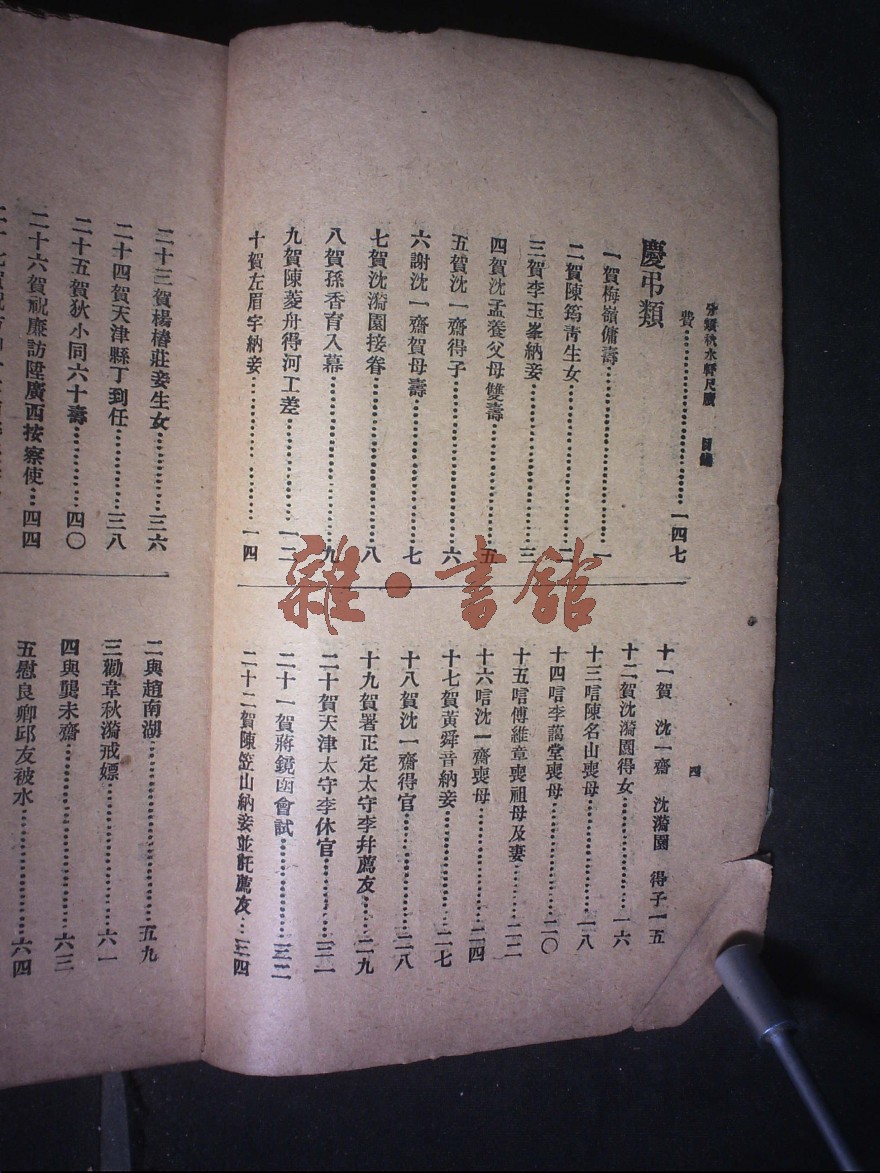 分類秋水軒尺牘　目錄
四
費……一四七
慶弔類
一賀梅嶺傭壽……一
二賀陳筠青生女……二
三賀李玉峯納妾……三
四賀沈孟養父母雙壽……五
五賀沈一齋得子……六
六謝沈一齋賀母壽……七
七賀沈漪園接眷……八
八賀孫香育入幕……九
九賀陳菱舟得河工差……一二
十賀左眉宇納妾……一四
十一賀　沈一齋　沈漪園　得子一五
十二賀沈漪園得女……一六
十三唁陳名山喪母……一八
十四唁李藹堂喪母……二〇
十五唁傅維章喪祖母及妻……二二
十六唁沈一齋喪母……二四
十七賀黃舜音納妾……二七
十八賀沈一齋得官……二八
十九賀署正定太守李幷薦友……二九
二十賀天津太守李休官……三一
二十一賀蔣鏡函會試……三二
二十二賀陳笠山納妾並託薦友……三四
二十三賀楊椿莊妾生女……三六
二十四賀天津縣丁到任……三八
二十五賀狄小同六十壽……四〇
二十六賀祝廉訪陞廣西按察使…四四
二與趙南湖……五九
三勸韋秋漪戒嫖……六一
四與龔未齋……六三
五慰良鄉邱友被水……六四
雜·書館